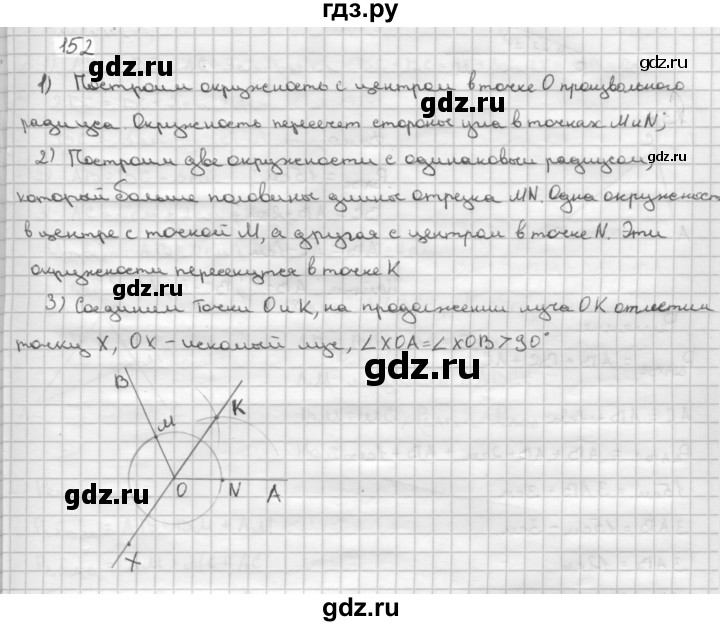 гдз.ру
152
gdz.ru
gdz.ru
1) Построим окружность с центром в точке О произвольного
радиуса. Окружность пересечет стороны угла в точках M и N;
2) Построим две окружности с одинаковым радиусом,
который больше половины длины отрезка MN. Одна окружност
в центре с точкой M, а другая с центром в точке N. Эти
окружности пересекутся в точке K
3) Соединим точки О и K, на продолжении луча OK отметим
точку X, OX - искомый луч, ∠XOA=∠XOB>90°
gdz.ru
B
M
K
gdz.ru
O
N
A
gdz.ru
X
gdz.ru